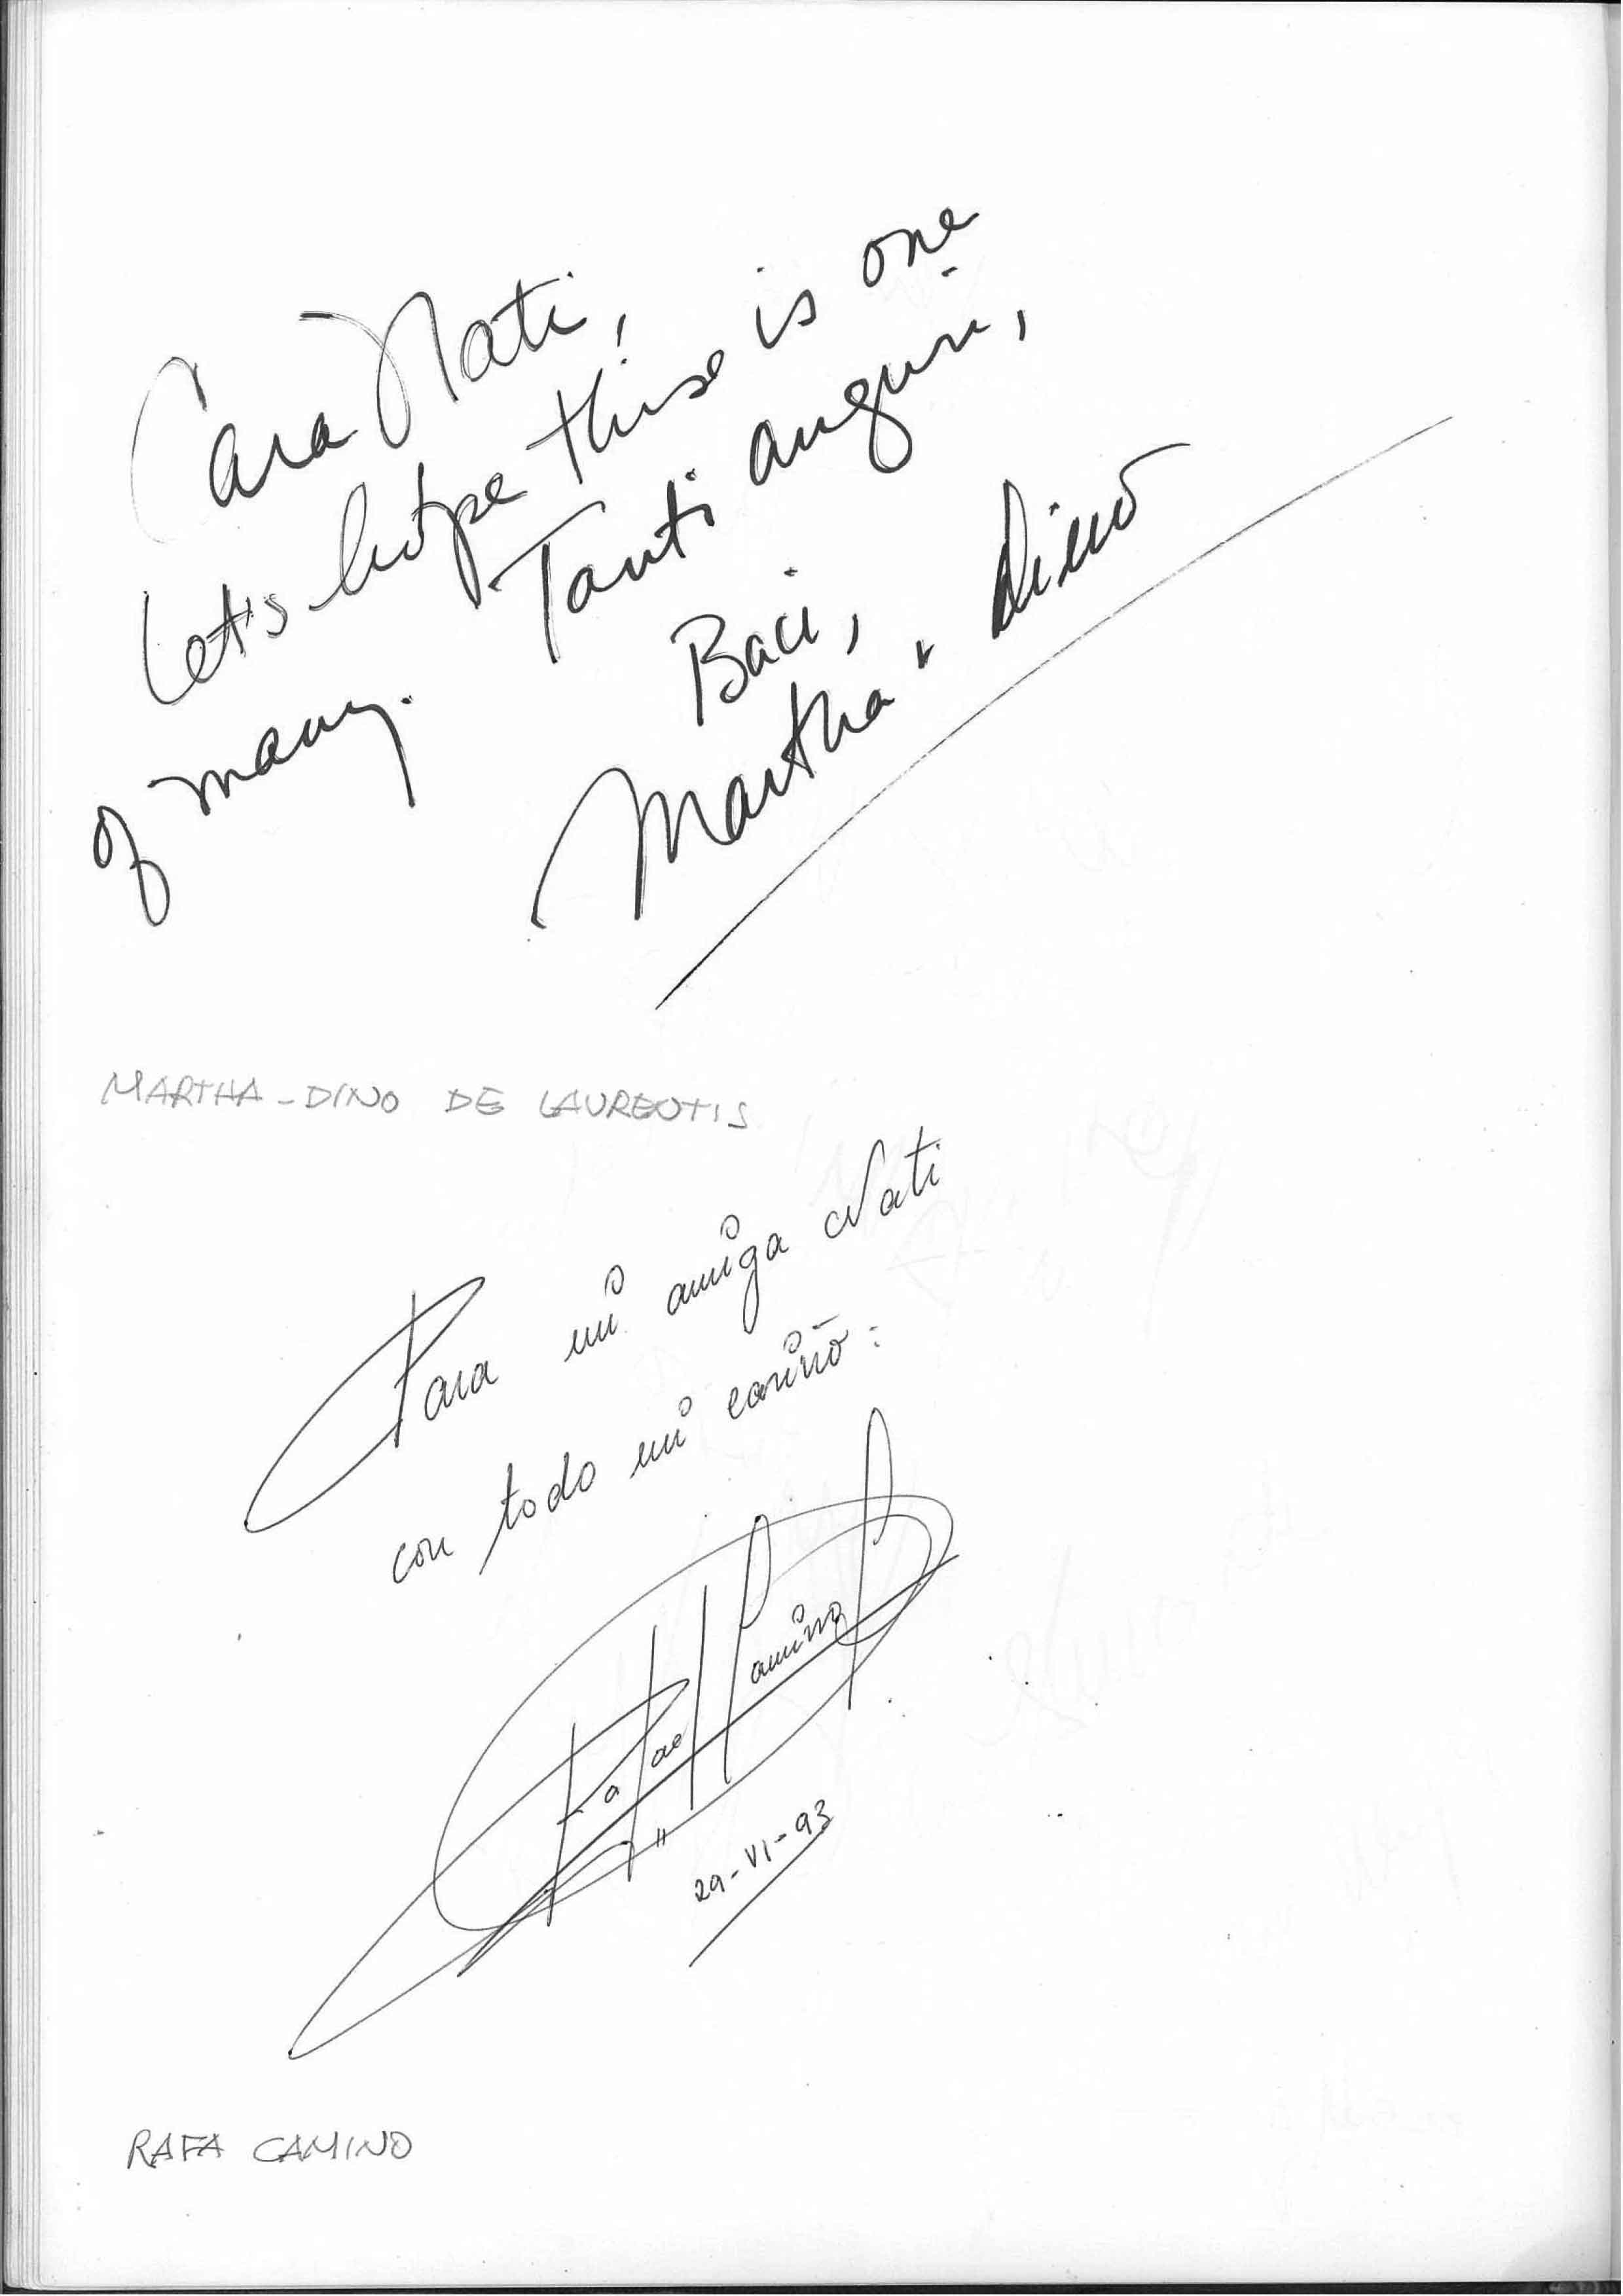 Cara Nati,
Let's hope this is one
of many. Tanti auguri,
Baci,
Martha & Dino
MARTHA-DINO DE LAURENTIS
Para mi amiga Nati
con todo mi cariño:
Rafael Camino
29-VI-93
RAFA CAMINO